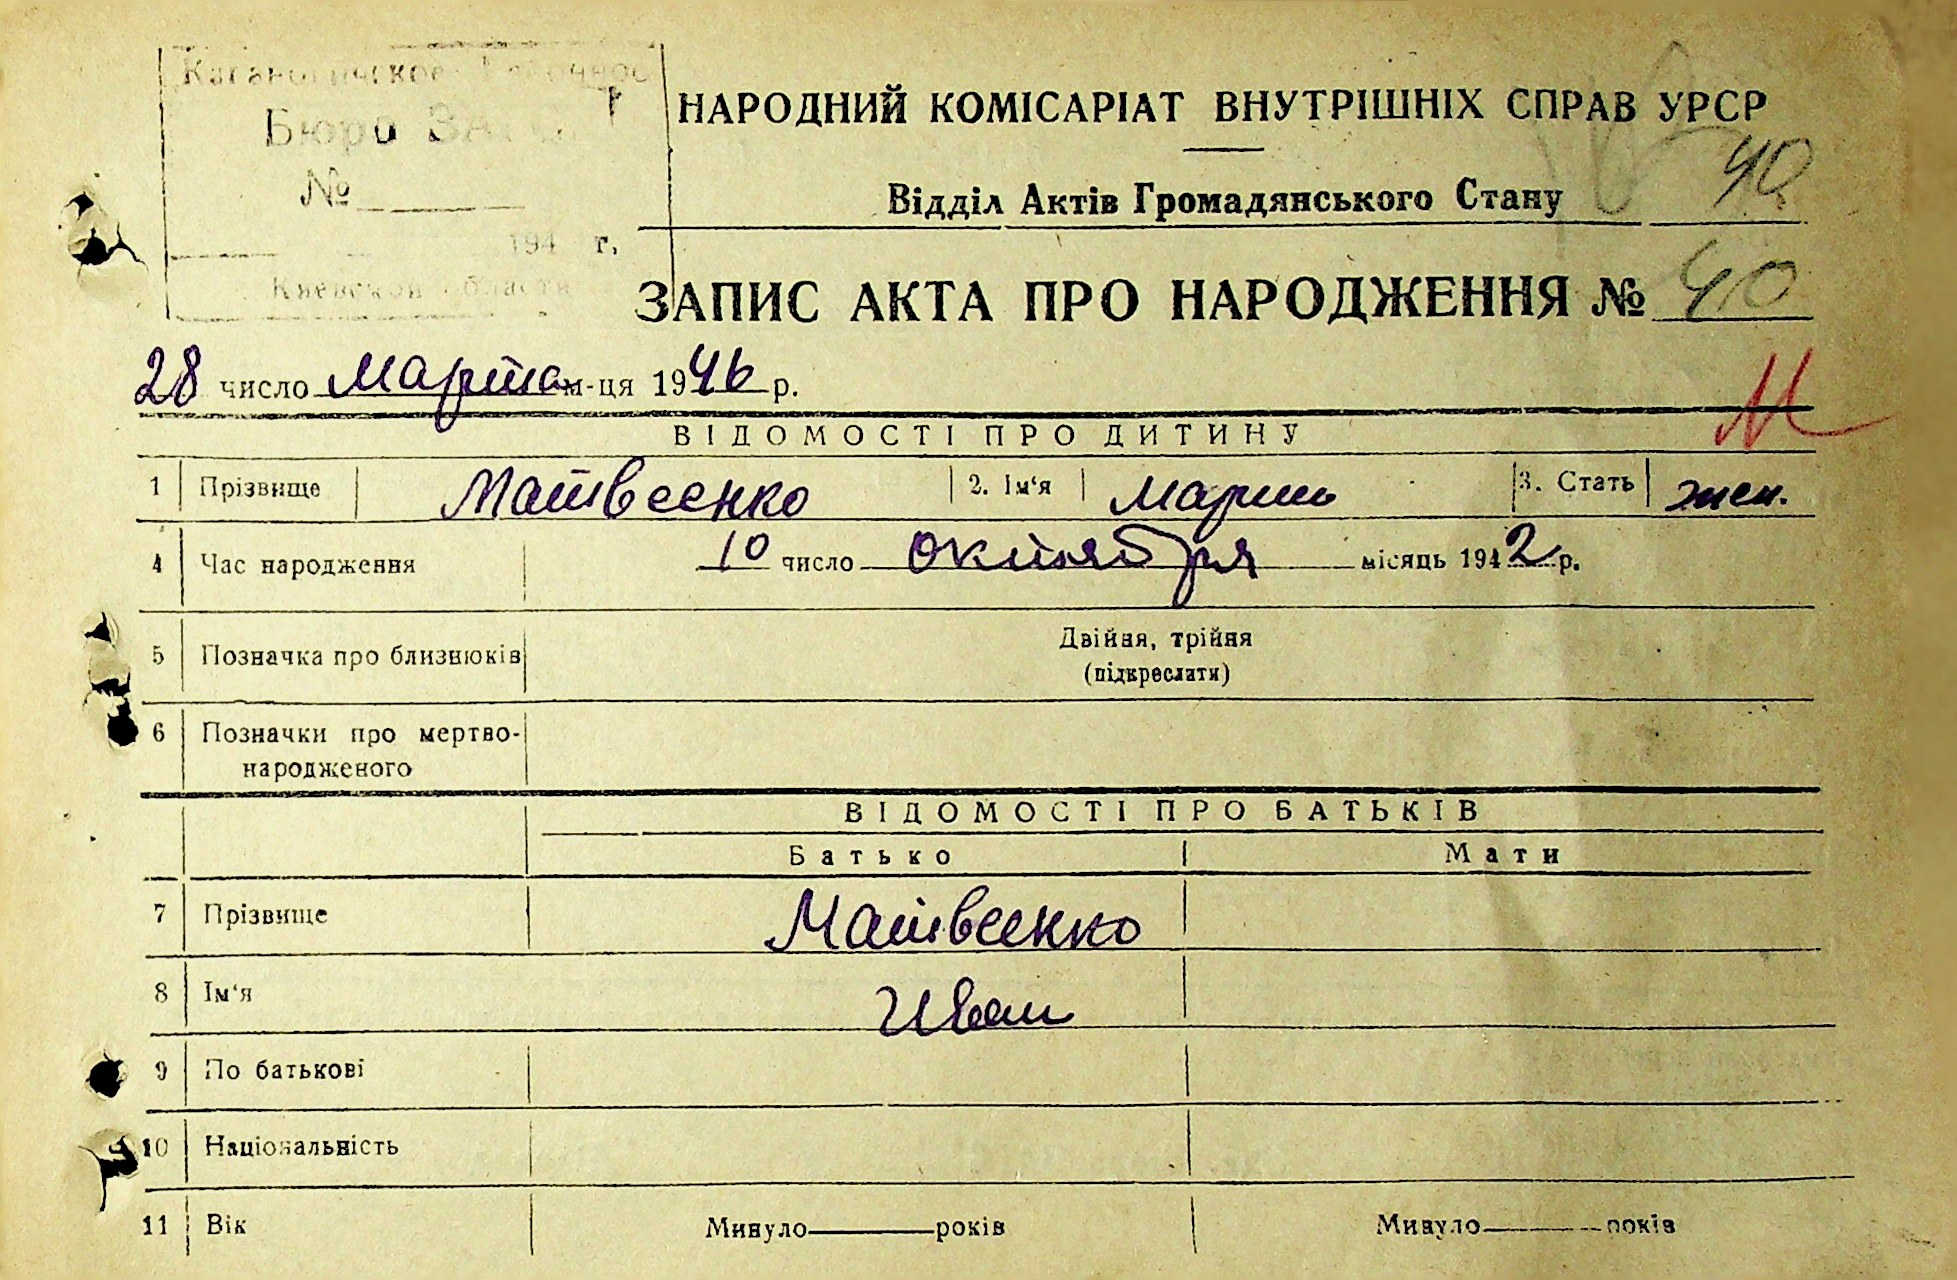 Кагановичское Районное
Бюро ЗАГС
№
194 г.
Киевской области
НАРОДНИЙ КОМІСАРІАТ ВНУТРІШНІХ СПРАВ УРСР
Відділ Актів Громадянського Стану 40
ЗАПИС АКТА ПРО НАРОДЖЕННЯ № 40
28 число марта м-ця 1946 р.
М
ВІДОМОСТІ ПРО ДИТИНУ
1 Прізвище Матвеенко 2. Ім‘я Мария 3. Стать жен.
4 Час народження 10 число октября місяць 1942 р.
5 Позначка про близнюків Двійня, трійня
(підкреслати)
6 Позначки про мертво-
народженого
ВІДОМОСТІ ПРО БАТЬКІВ
Батько Мати
7 Прізвище Матвеенко
8 Ім‘я Иван
9 По батькові
10 Національність
11 Вік Минуло років Минуло років